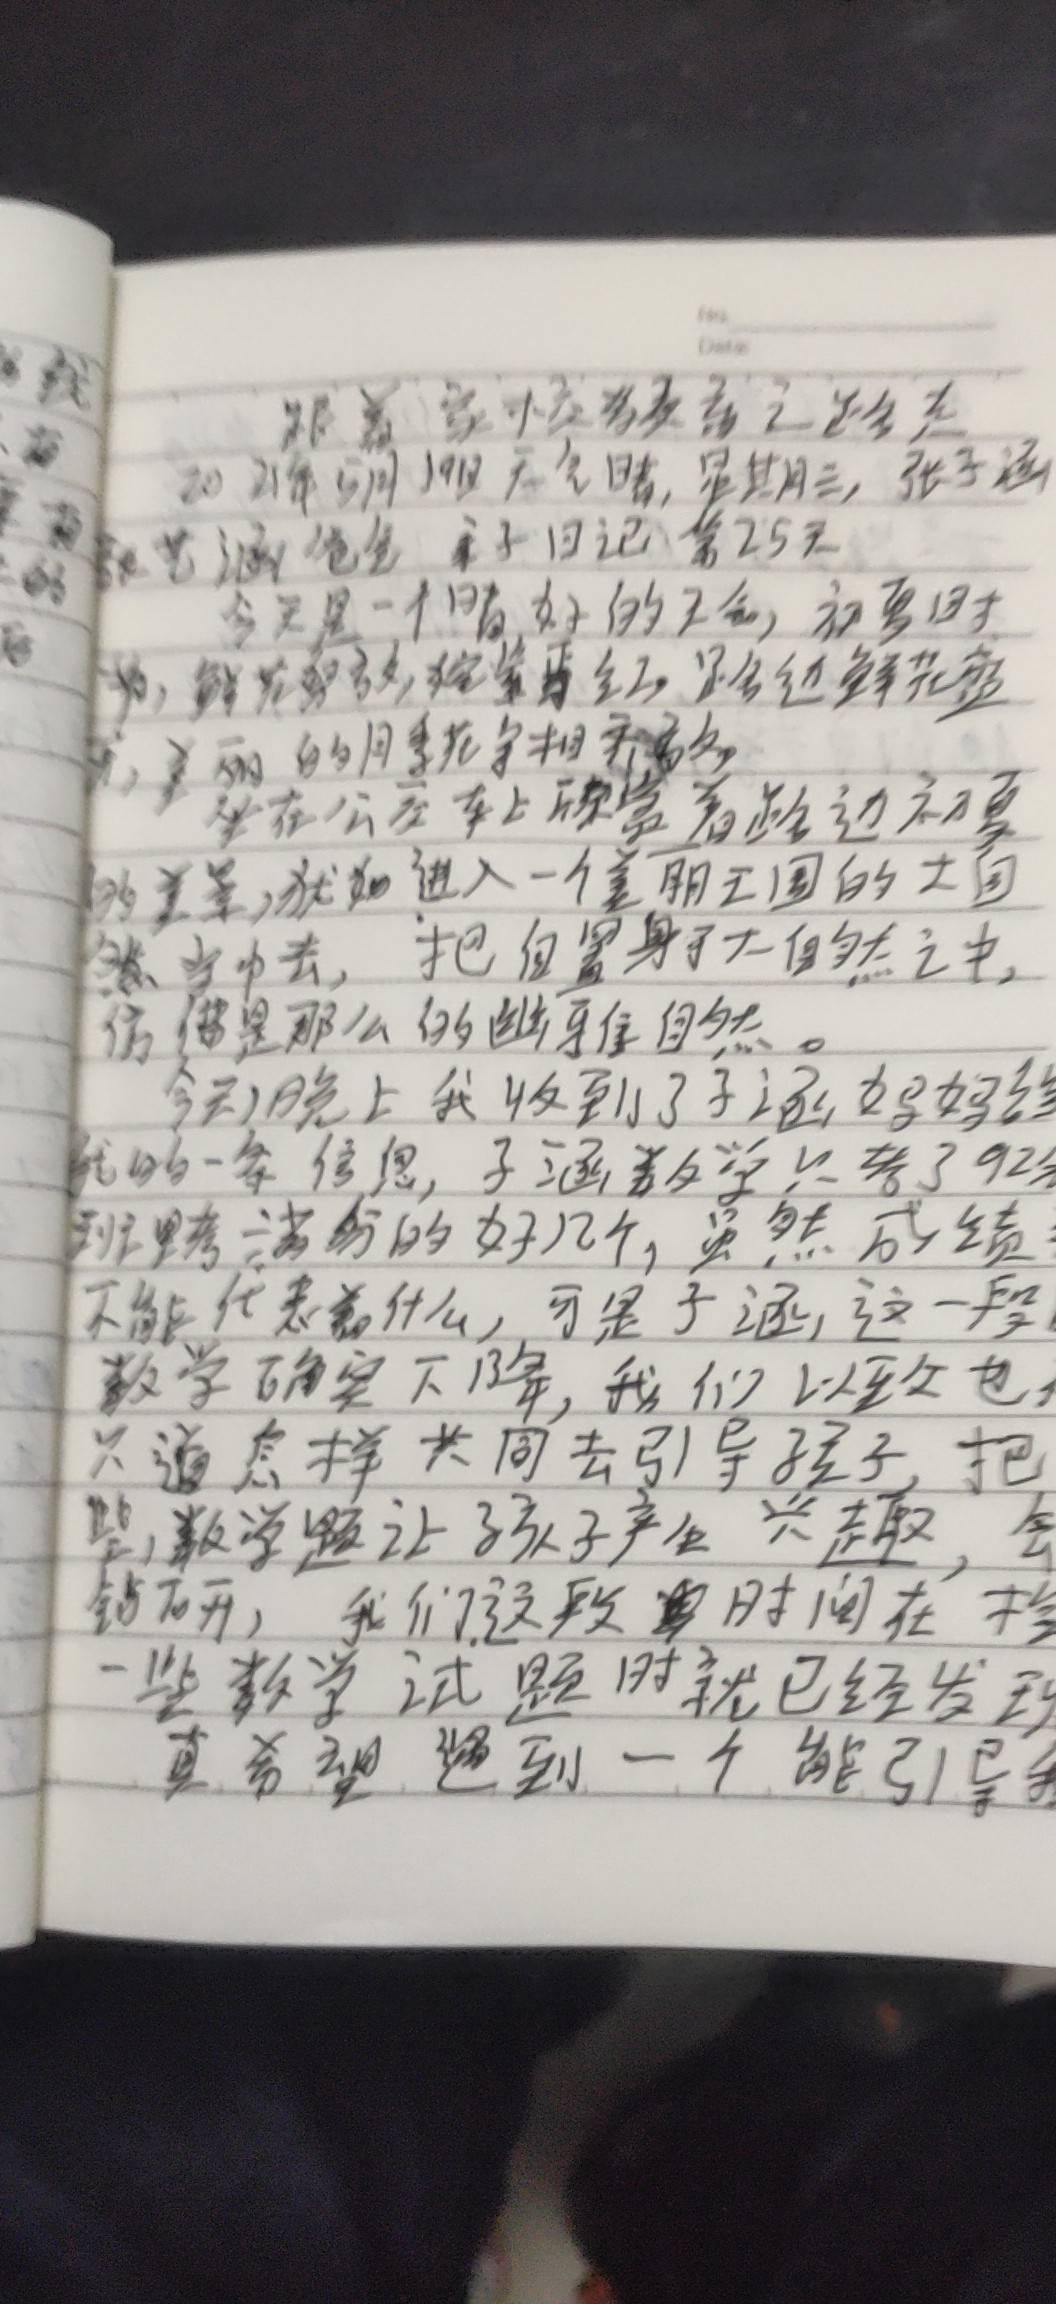 No.
Date
跟着家庭教育之路走
2021年5月19日 天气晴,星期三,张子涵
张艺涵爸爸 亲子日记 第25天
今天是一个晴好的天气,初夏时
鲜花怒放,姹紫嫣红。路边鲜花盛
美丽的月季花争相开放。
坐在公交车上欣赏着路边初夏
的美景,犹如进入一个美丽王国的大自
然当中去,把自置身于大自然之中,
是那么的 自然。
今天晚上我收到了子涵妈妈给
我的一条信息,子涵数学只考了92分
到班里考满分的好几个,虽然成绩
不能代表着什么,可是子涵这一段
数学确实下降,我们以至于也
只道怎样共同去引导孩子,把
些数学题让孩子产生兴趣,会
钻研,我们这段时间在检
一些数学试题时就已经发现
真希望遇到一个能引导